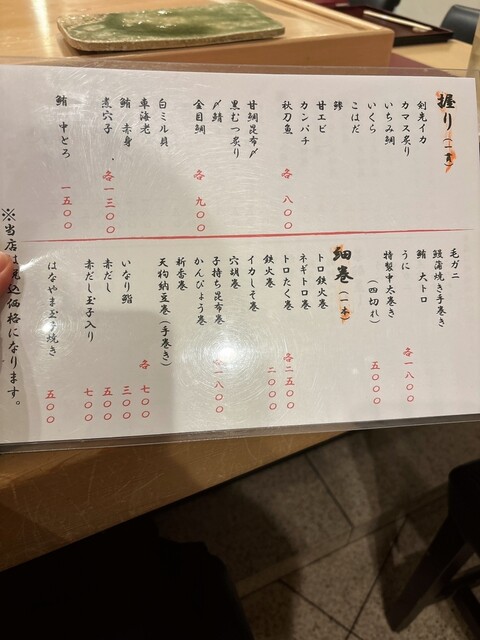 握り(一貫)
剣先イカ
カマス炙り
いちみ鯛
いくら
こはだ
鯵
甘エビ
カンパチ
秋刀魚
各 八〇〇
甘鯛昆布〆
黒むつ炙り
〆鯖
金目鯛
各 九〇〇
白ミル貝
車海老
鮪 赤身
煮穴子
各 一三〇〇
鮪 中とろ
一五〇〇
毛ガニ
鰻蒲焼き手巻き
鮪 大トロ
うに
各 一八〇〇
特製中太巻き
(四切れ)
五〇〇〇
細巻(一本)
トロ鉄火巻
ネギトロ巻
トロたく巻
各 二五〇〇
鉄火巻
二〇〇〇
イカしそ巻
穴胡巻
子持ち昆布巻
かんぴょう巻
一八〇〇
新香巻
天然納豆巻(手巻き)
各 七〇〇
いなり鮨
三〇〇
赤だし
五〇〇
赤だし玉子入り
七〇〇
はなやま玉子焼き
五〇〇
※当店は税込価格になります。